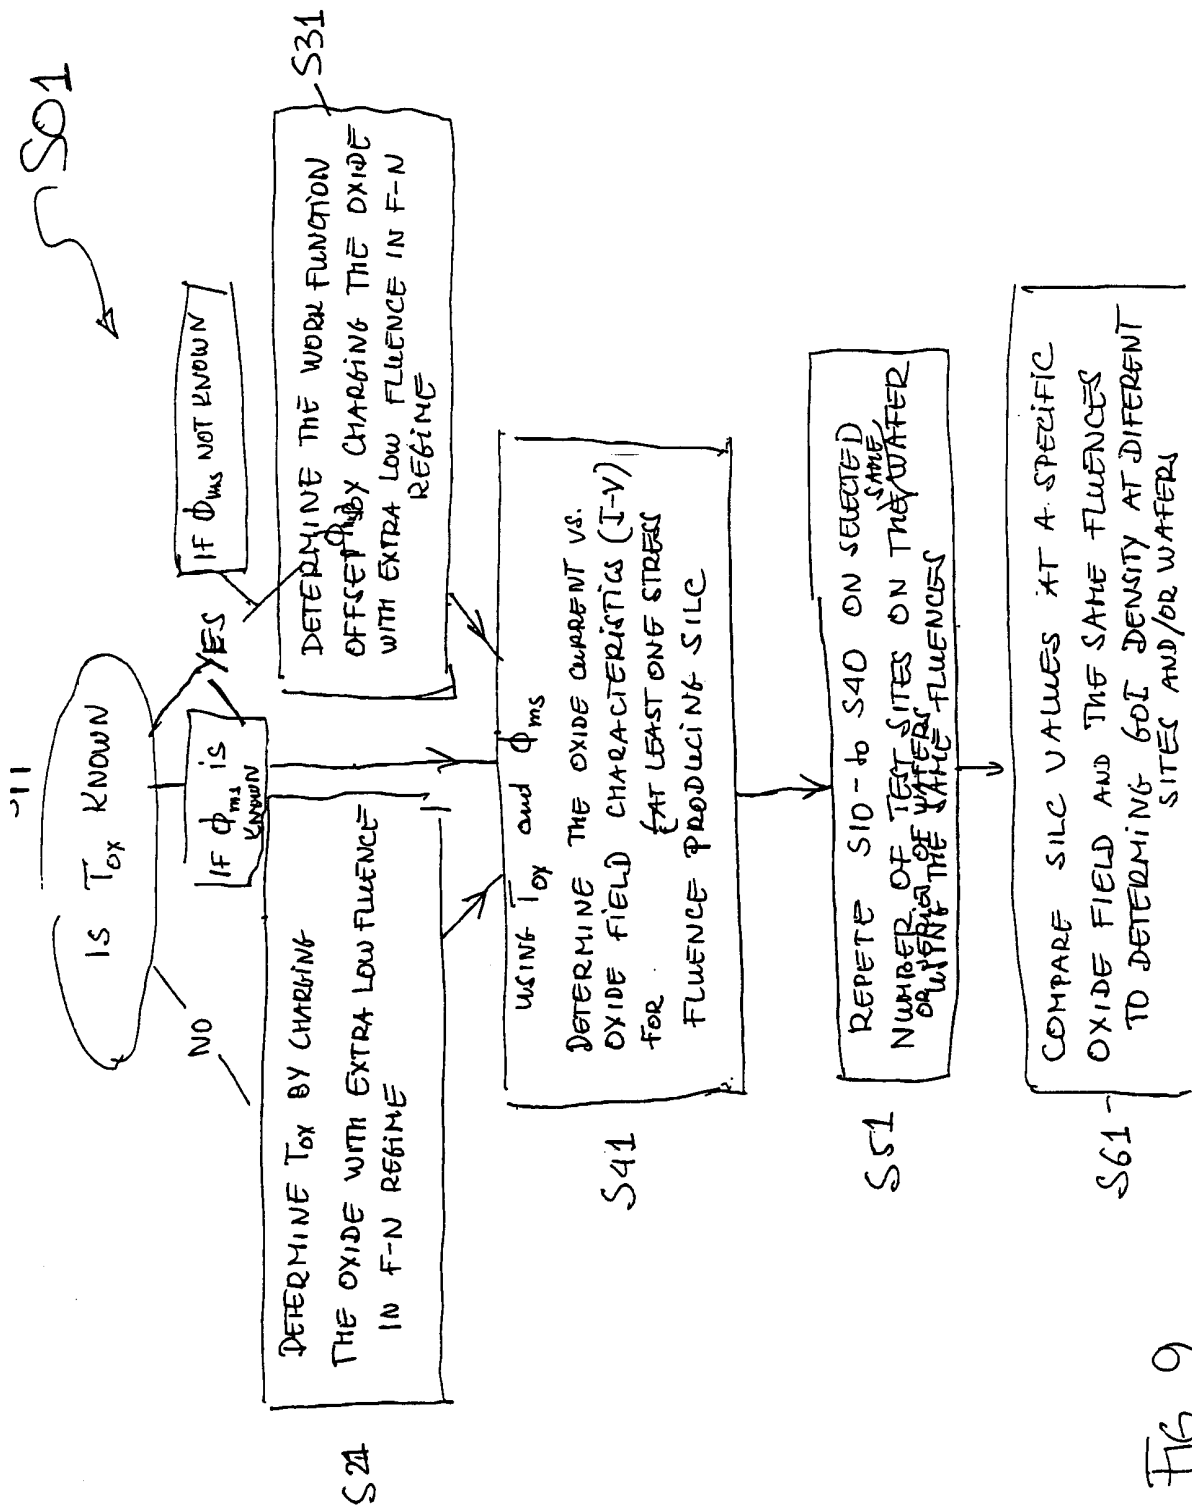 S01
S11
IS Tox KNOWN
NO
YES
IF Φms is
KNOWN
IF Φms NOT KNOWN
S21
DETERMINE Tox BY CHARGING
THE OXIDE WITH EXTRA LOW FLUENCE
IN F-N REGIME
S31
DETERMINE THE WORK FUNCTION
OFFSET Φms BY CHARGING THE OXIDE
WITH EXTRA LOW FLUENCE IN F-N
REGIME
S41
USING Tox and Φms
DETERMINE THE OXIDE CURRENT VS.
OXIDE FIELD CHARACTERISTICS (I-V)
FOR (AT LEAST ONE STRESS
FLUENCE PRODUCING SILC
S51
REPETE S10-to S40 ON SELECTED
NUMBER OF TEST SITES ON THE SAME WAFER
OR SERIES OF WAFERS
USING THE SAME FLUENCES
S61
COMPARE SILC VALUES AT A SPECIFIC
OXIDE FIELD AND THE SAME FLUENCES
TO DETERMING GOI DENSITY AT DIFERENT
SITES AND/OR WAFERS
FIG 9